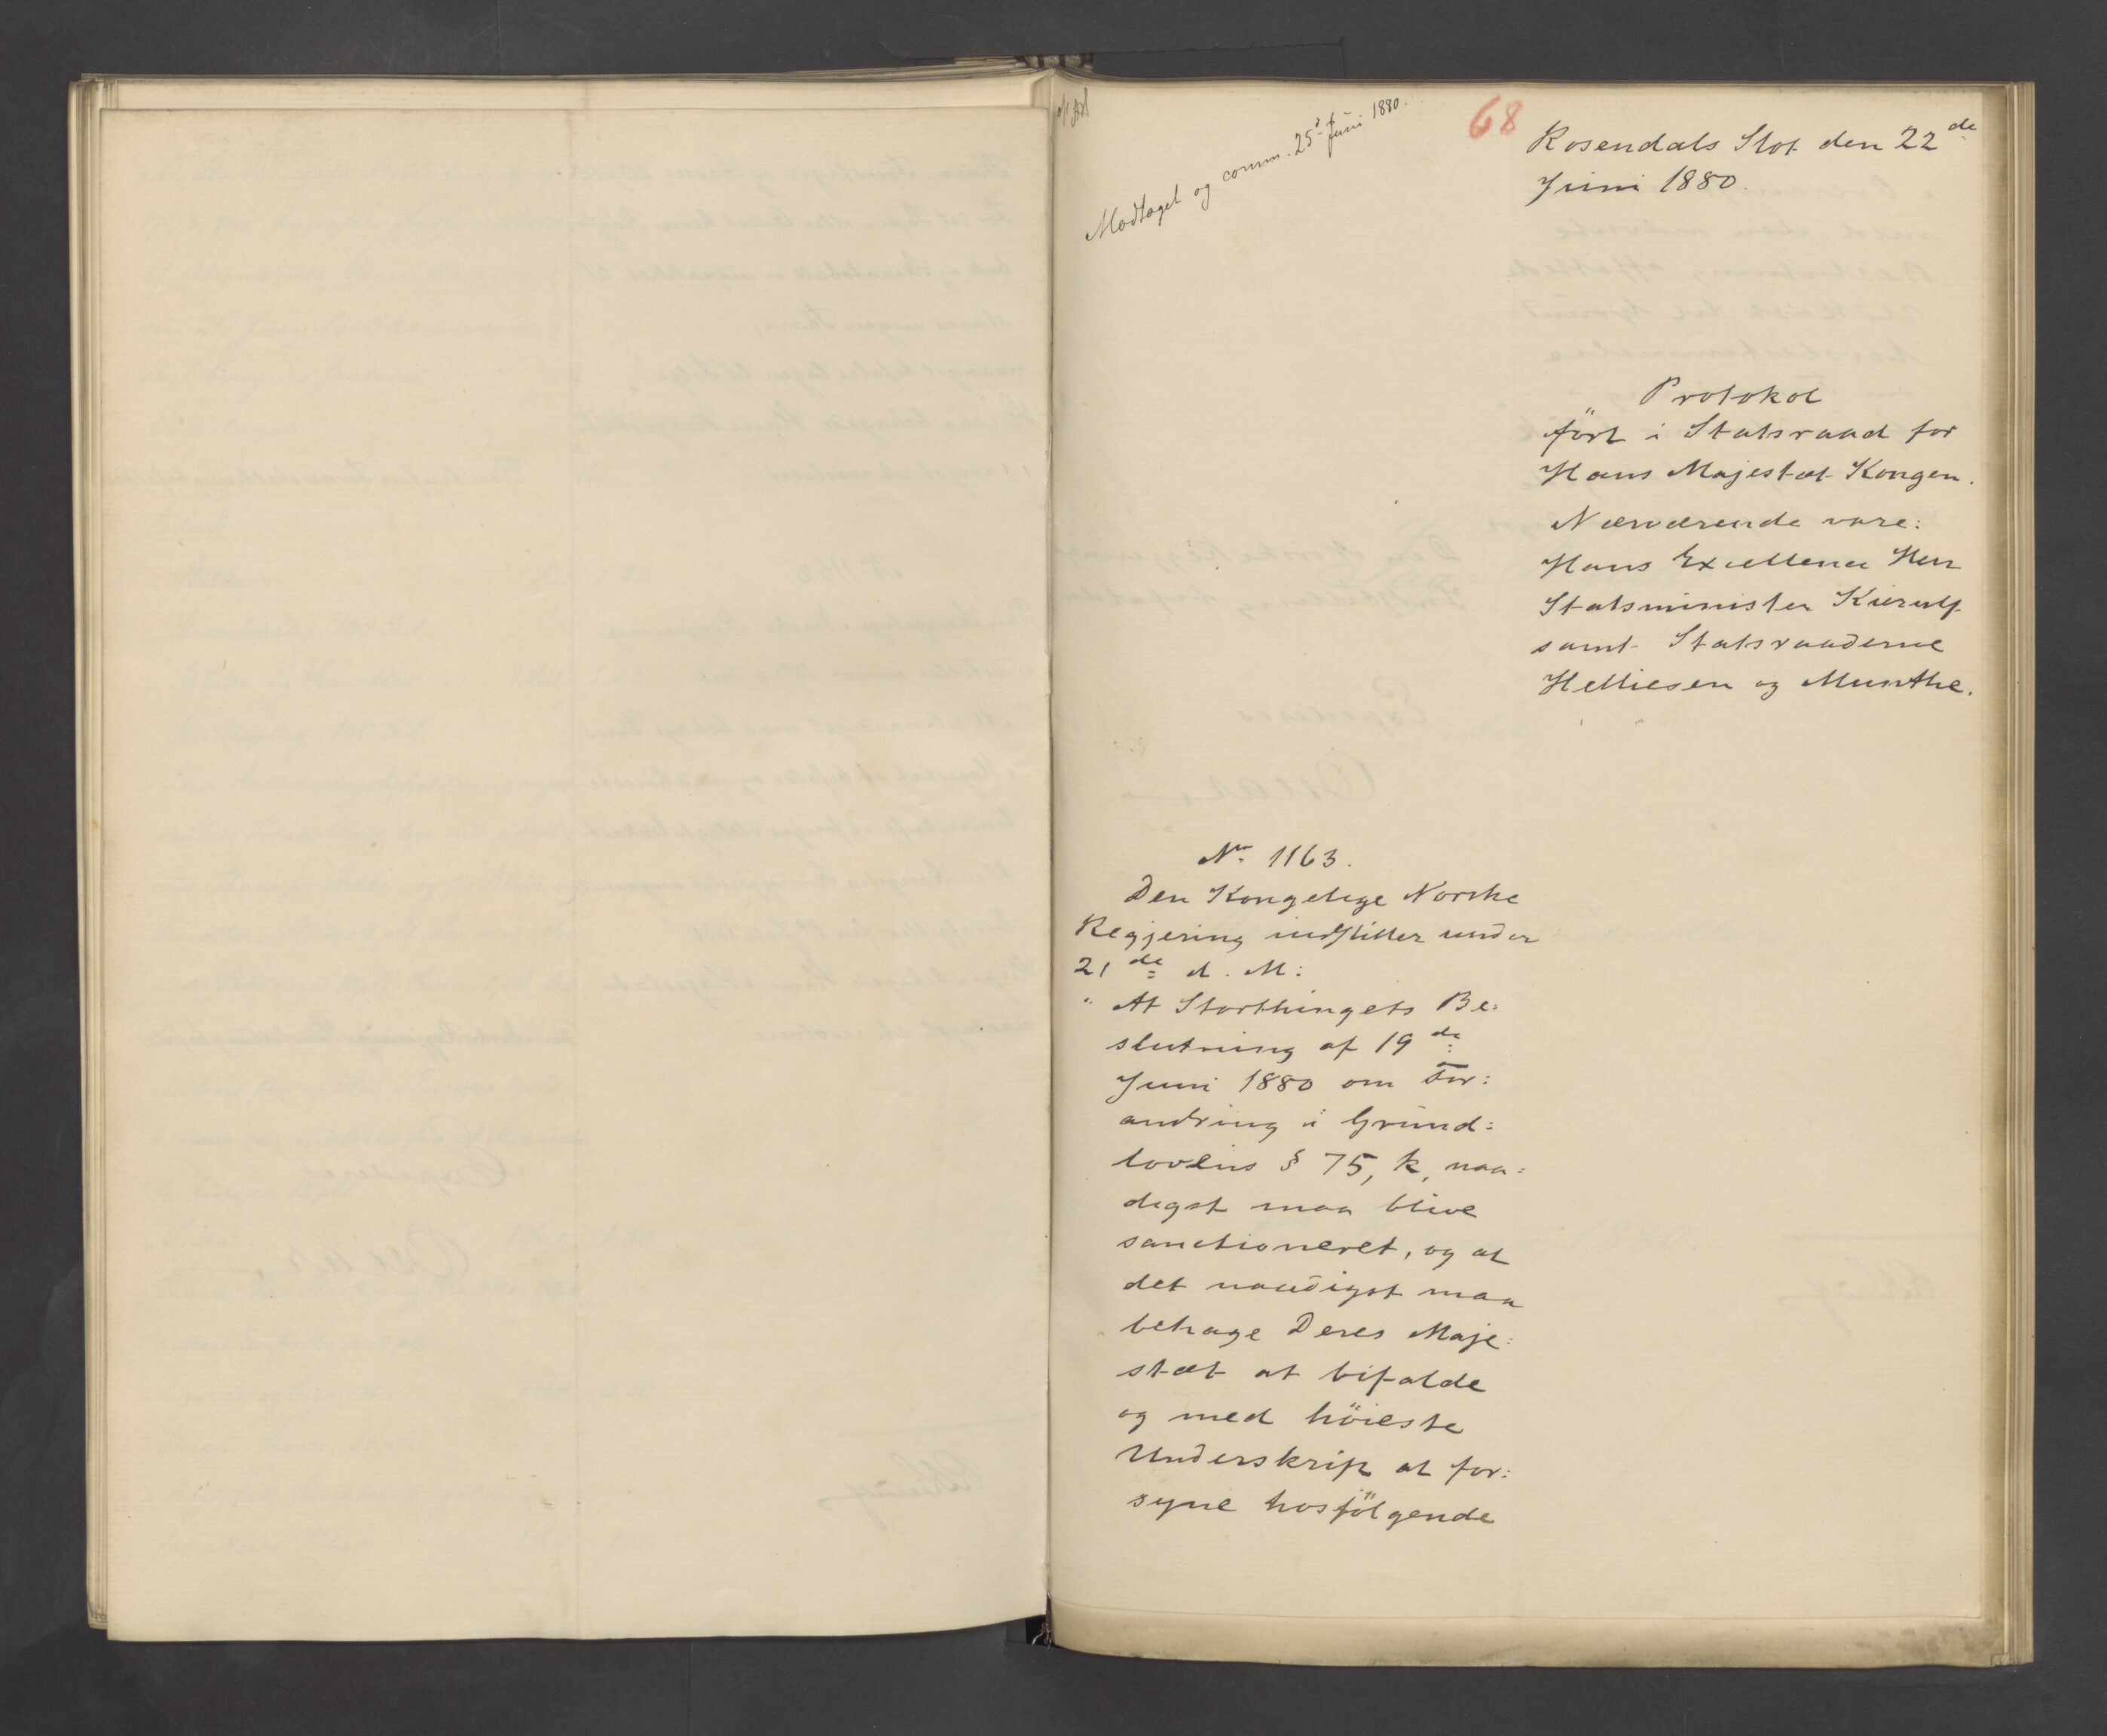 Modtaget og comm. 25de Juni 1880.
68
Rosendals Slot den 22de
Juni 1880.
Protokol
ført i Statsraad for
Hans Majestæt Kongen.
Nærværende vare:
Hans Excellence Herr
Statsminister Kierulf
samt Statsraaderne
Helliesen og Munthe.
No 1163.
Den Kongelige Norske
Regjering indstiller under
21de d. M:
"At Storthingets Be:
slutning af 19de
Juni 1880 om For:
andring i Grund:
lovens § 75, k, naa:
digst maa blive
sanctioneret, og at
det naadigst maa
behage Deres Maje:
stæt at bifalde
og med höieste
Underskrift at for:
syne hosfölgende